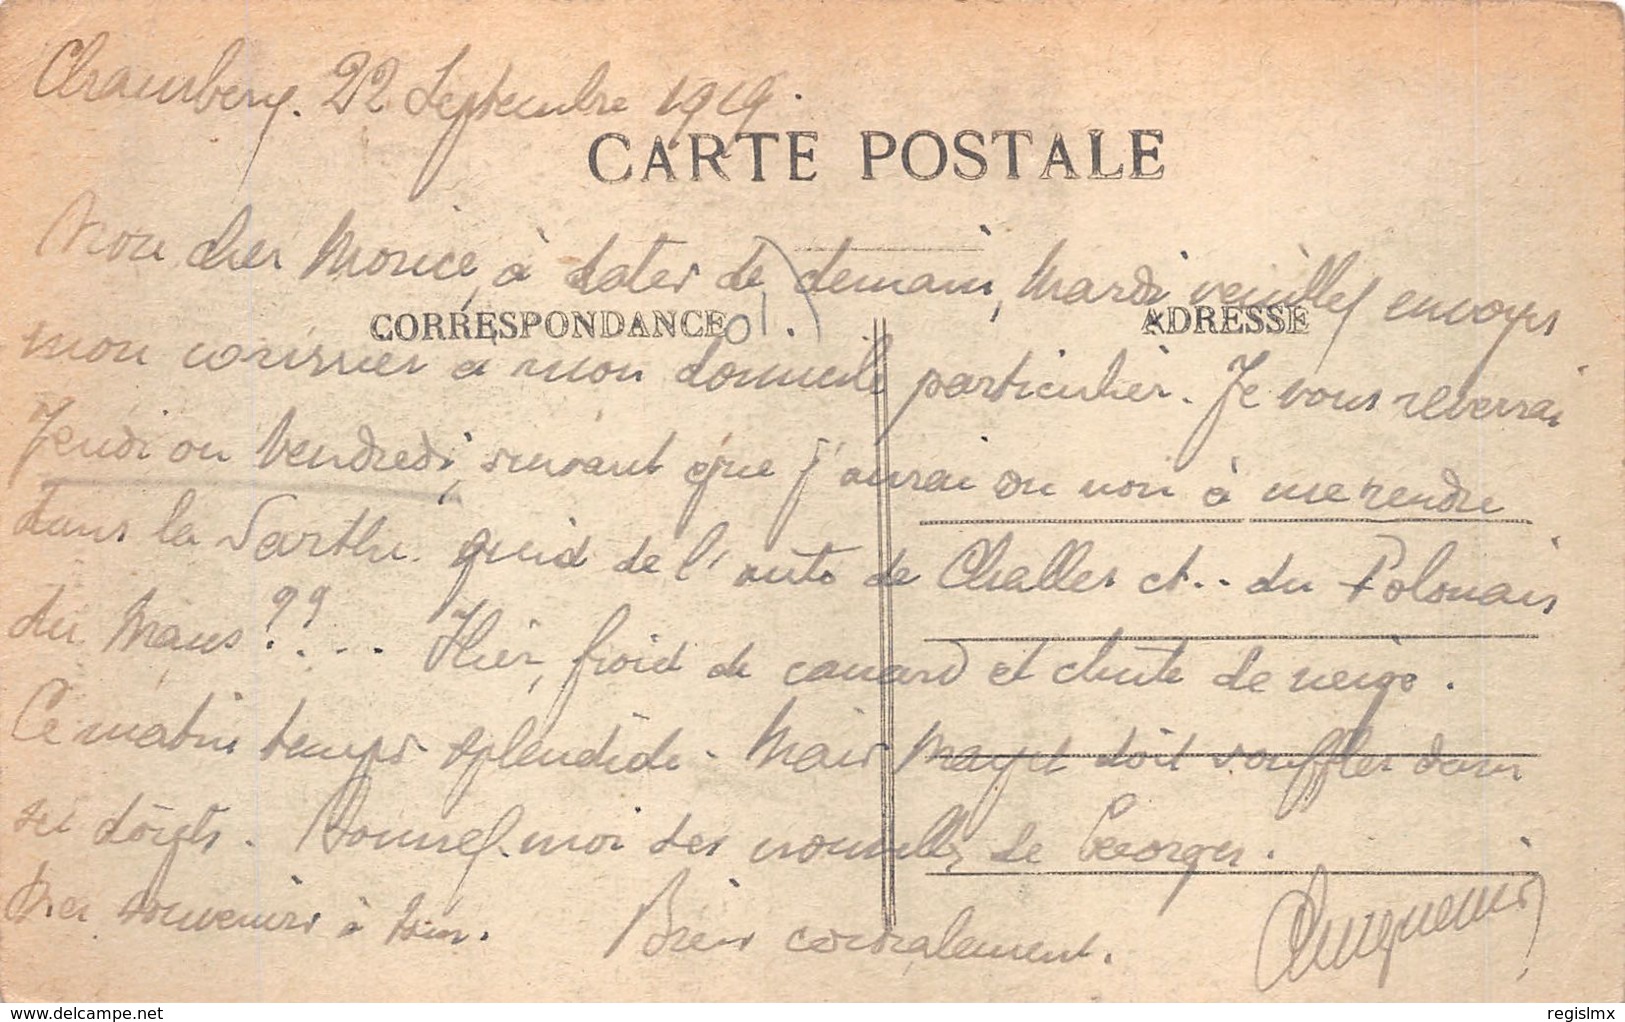 Chambéry. 22 Septembre 1919.
CARTE POSTALE
Mon cher Morice, à dater de demain, Mardi veuillez envoyer
CORRESPONDANCE
ADRESSE
mon courrier à mon domicile particulier. Je vous reverrai
Jeudi ou Vendredi, suivant que j'aurai ou non à me rendre
dans la Sarthe. quid de l'auto de Challes et.. du Polonais
du Mans ??... Hier, froid de canard et chute de neige.
Ce matin temps splendide. Mais Mayet doit souffler dans
ses doigts. Donnez-moi des nouvelles de Georges.
Mes souvenirs à tous. Bien cordialement.
regislmx
delcampe.net